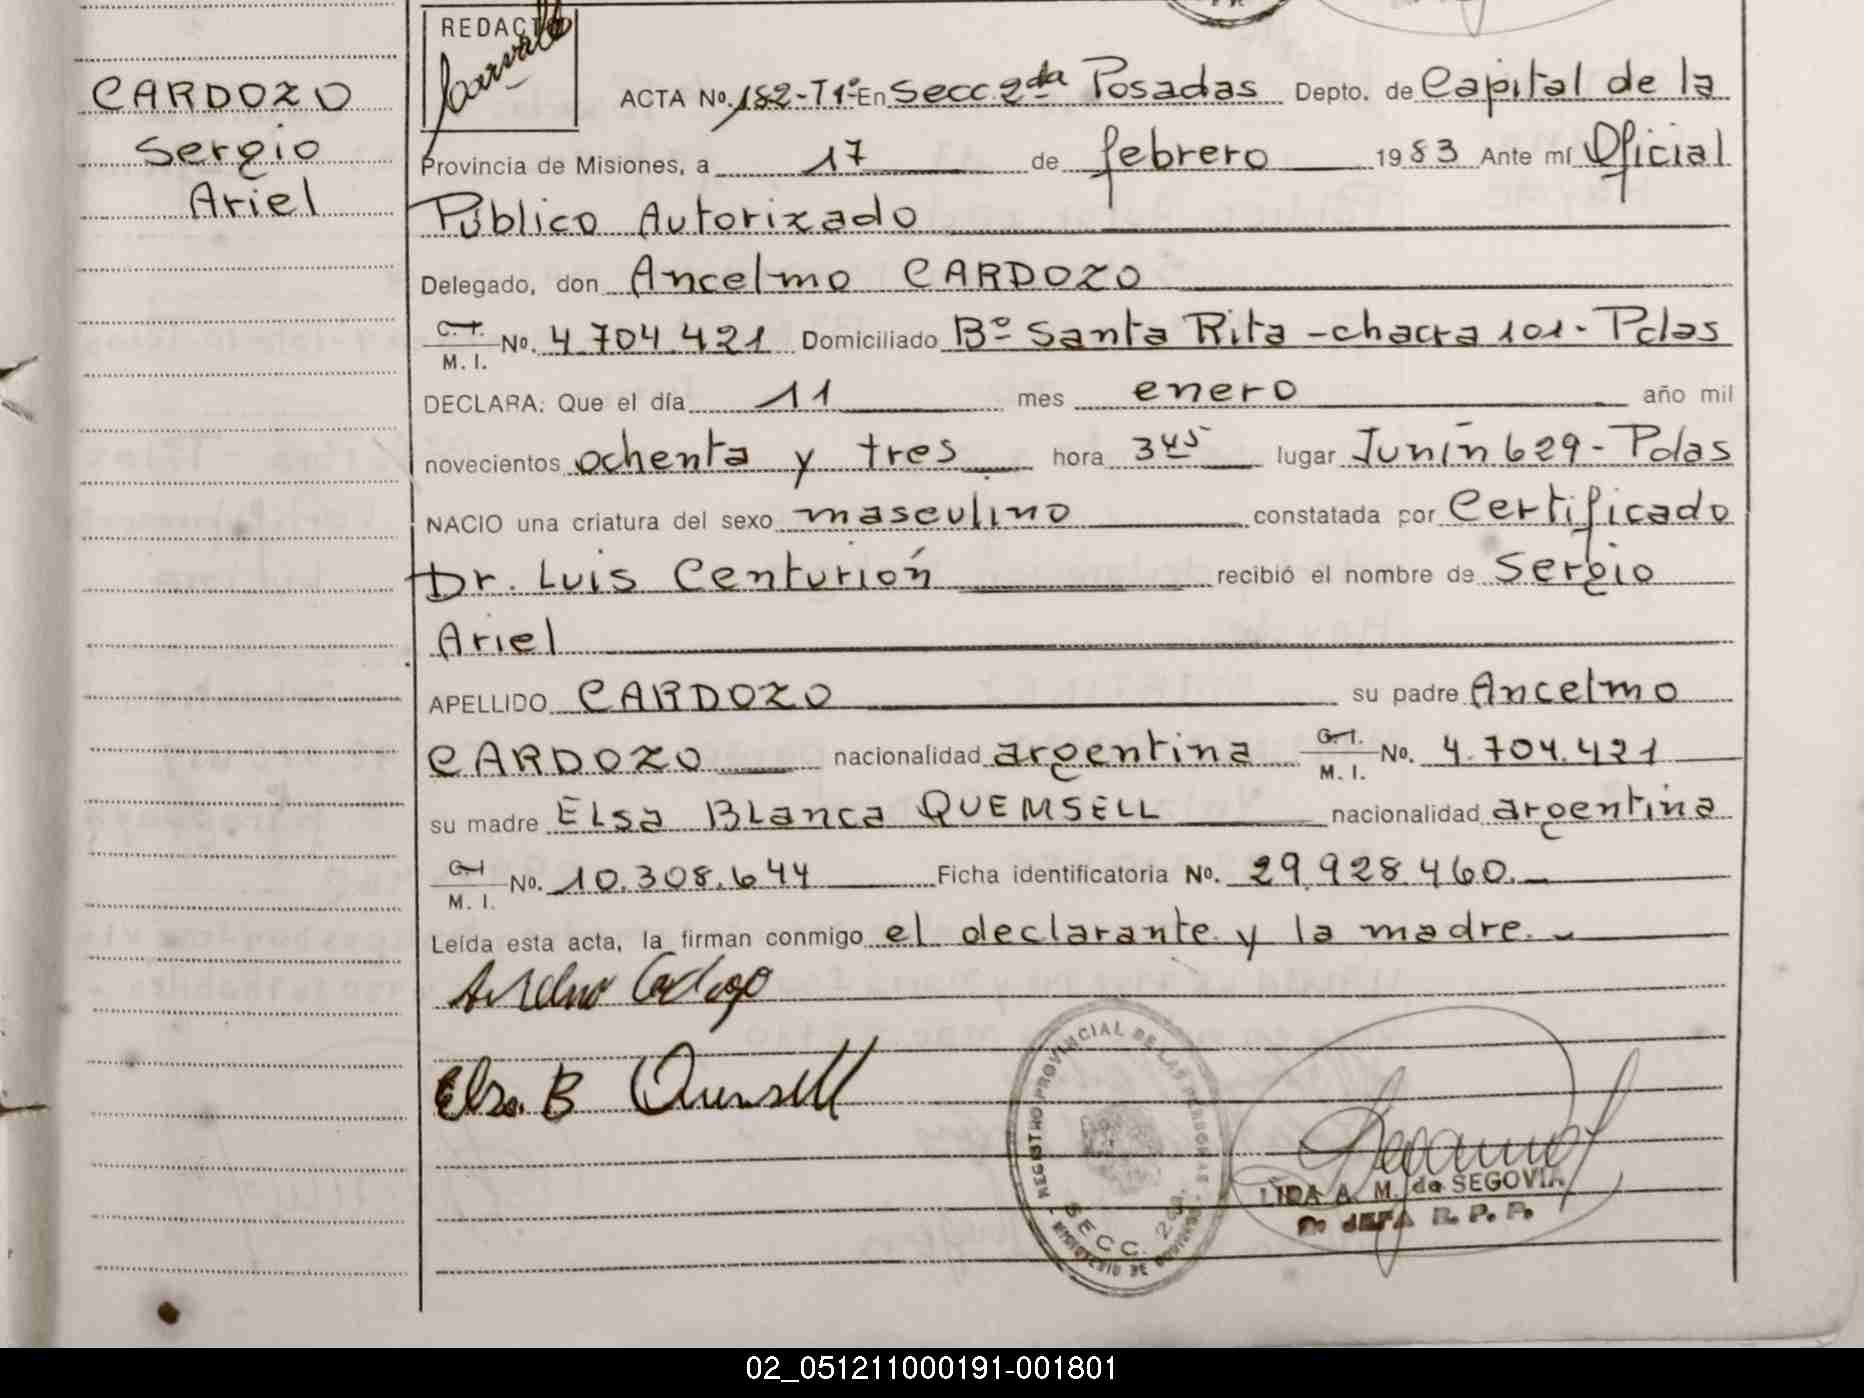 REDACTO
CARDOZO
Sergio
Ariel
ACTA No. 182-T1º En Secc 2da Posadas Depto. de Capital de la
Provincia de Misiones, a 17 de febrero 1983 Ante mí Oficial
Público Autorizado
Delegado, don Ancelmo CARDOZO
C.I. M.I. No. 4.704.421 Domiciliado Bº Santa Rita - chacra 101 - Pdas
DECLARA: Que el día 11 mes enero año mil
novecientos ochenta y tres hora 3 45 lugar Junín 629 - Pdas
NACIO una criatura del sexo masculino constatada por Certificado
Dr. Luis Centurión recibió el nombre de Sergio
Ariel
APELLIDO CARDOZO su padre Ancelmo
CARDOZO nacionalidad argentina C.I. M.I. No. 4.704.421
su madre Elsa Blanca QUEMSELL nacionalidad argentina
C.I. M.I. No. 10.308.644 Ficha identificatoria No. 29.928.460.
Leída esta acta, la firman conmigo el declarante y la madre.
Elsa B Quemsell
REGISTRO PROVINCIAL DE LAS PERSONAS
SECC. 2da.
MINISTERIO DE GOBIERNO
LIDA A. M. de SEGOVIA
JEFA R. P. P.
02_051211000191-001801